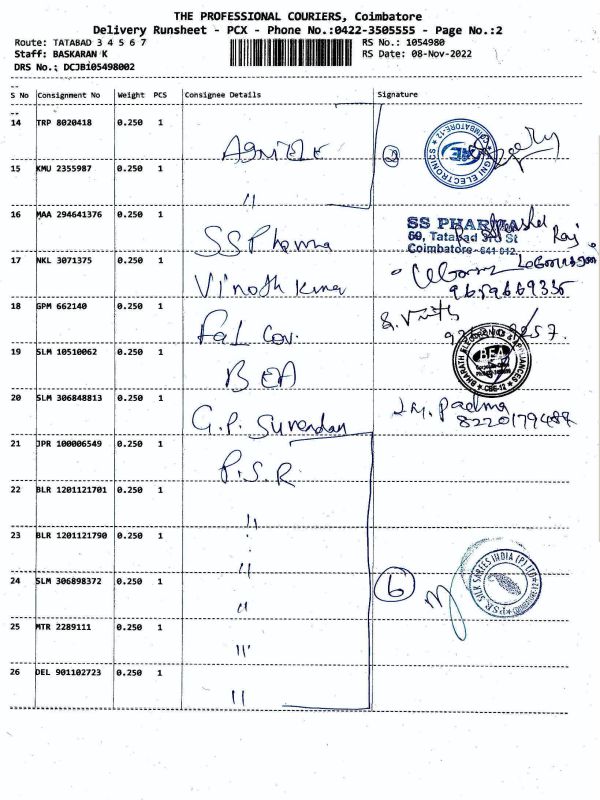 THE PROFESSIONAL COURIERS, Coimbatore
Delivery Runsheet - PCX - Phone No.:0422-3505555 - Page No.:2
Route: TATABAD 3 4 5 6 7
RS No.: 1054980
Staff: BASKARAN K
RS Date: 08-Nov-2022
DRS No.: DCJBi05498002
S No Consignment No Weight PCS Consignee Details Signature
14 TRP 8020418 0.250 1
2
AGNI ELECTRONICS
COIMBATORE-12
15 KMU 2355987 0.250 1 "
16 MAA 294641376 0.250 1 SS Pharma
SS PHARMA
60, Tatabad 3rd St
Coimbatore-641 012.
17 NKL 3071375 0.250 1 Vinoth Kumar
9659669335
18 GPM 662140 0.250 1 Fal Cov.
19 SLM 10510062 0.250 1 BEA
BHARATH ELECTRONICS & APPLIANCES
BEA
CBE-12
20 SLM 306848813 0.250 1 G.P. Surendan
J.M. Padma
8220179487
21 JPR 100006549 0.250 1 P.S.R.
22 BLR 1201121701 0.250 1 "
23 BLR 1201121790 0.250 1 "
24 SLM 306898372 0.250 1 "
6
P.S.R SILK SAREES INDIA (P) LTD
COIMBATORE-12
25 MTR 2289111 0.250 1 "
26 DEL 901102723 0.250 1 "